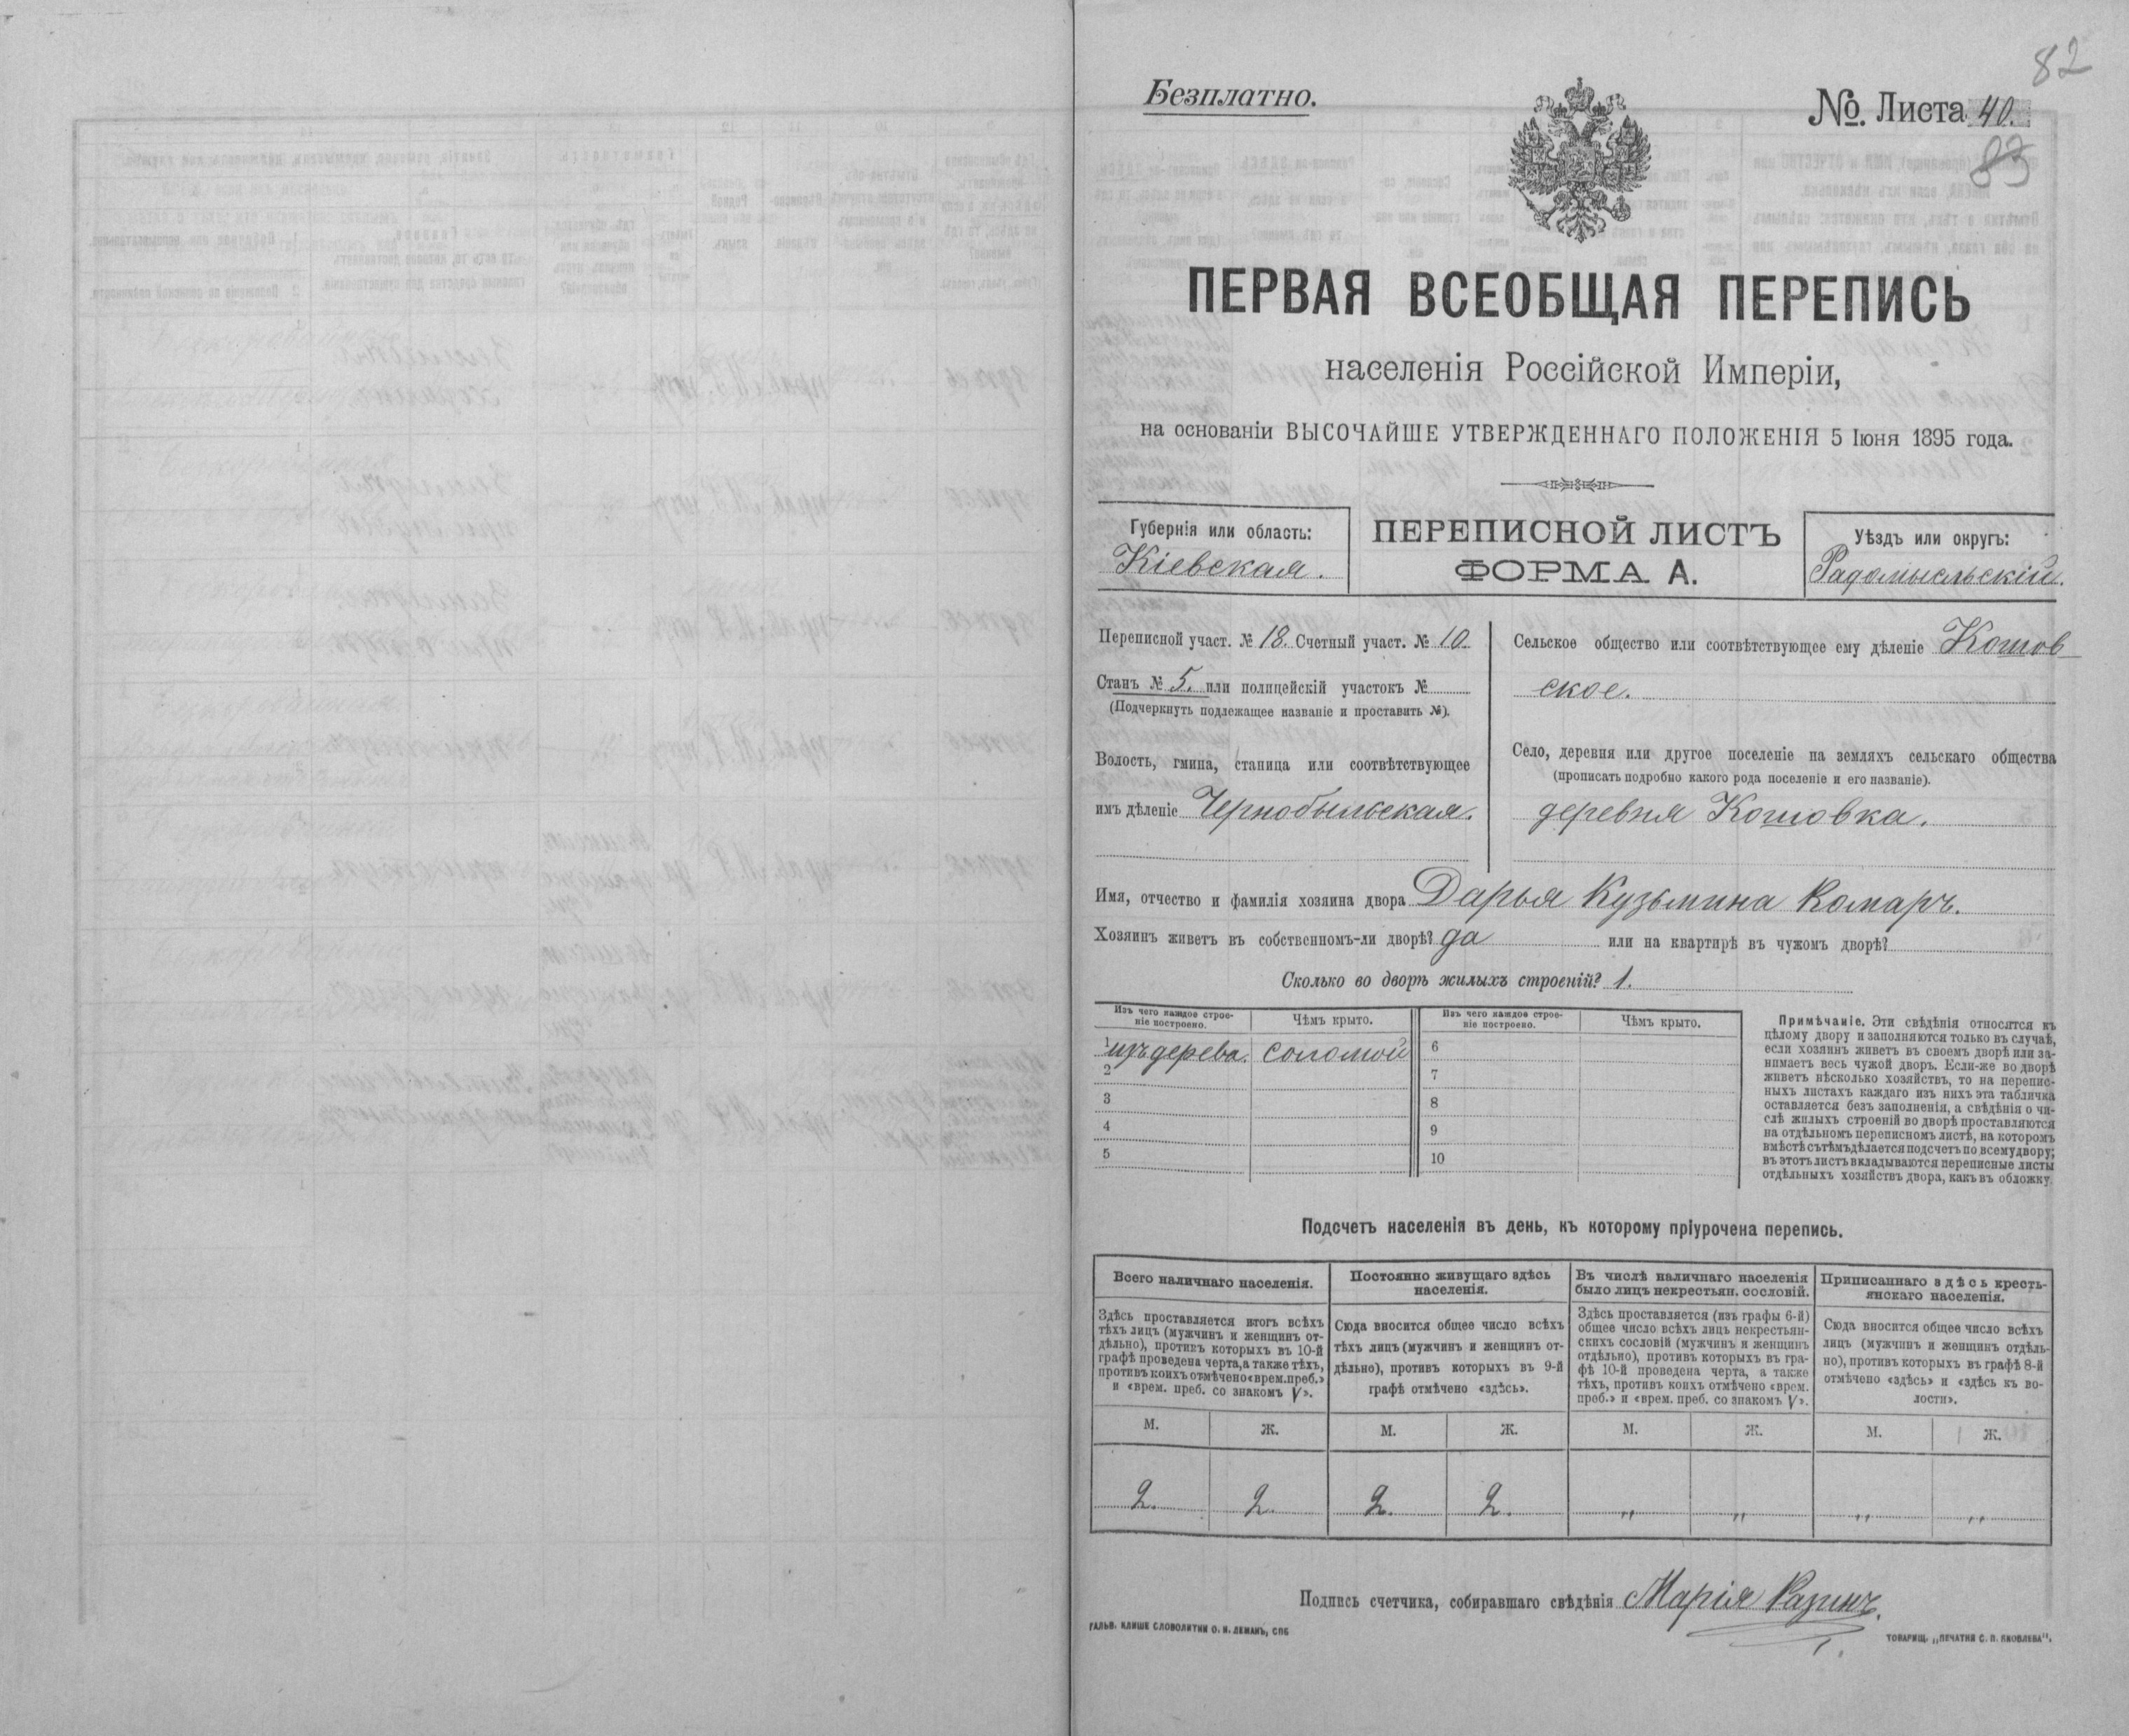 82
Безплатно.
№ Листа 40.
83
ПЕРВАЯ ВСЕОБЩАЯ ПЕРЕПИСЬ
населенія Россійской Имперіи,
на основаніи ВЫСОЧАЙШЕ УТВЕРЖДЕННАГО ПОЛОЖЕНІЯ 5 Іюня 1895 года.
Губернія или область:
Кіевская.
ПЕРЕПИСНОЙ ЛИСТЪ
ФОРМА А.
Уѣздъ или округъ:
Радомысльскій.
Переписной участ. № 18. Счетный участ. № 10.
Станъ № 5. или полицейскій участокъ №
(Подчеркнуть подлежащее названіе и проставить №).
Волость, гмина, станица или соотвѣтствующее
имъ дѣленіе Чернобыльская.
Сельское общество или соотвѣтствующее ему дѣленіе Кошов
ское.
Село, деревня или другое поселеніе на земляхъ сельскаго общества
(прописать подробно какого рода поселеніе и его названіе).
деревня Кошовка.
Имя, отчество и фамилія хозяина двора Дарья Кузьмина Комаръ.
Хозяинъ живетъ въ собственномъ-ли дворѣ? да или на квартирѣ въ чужомъ дворѣ?
Сколько во дворѣ жилыхъ строеній? 1.
Изъ чего каждое строе-
ніе построено.
Чѣмъ крыто.
Изъ чего каждое строе-
ніе построено.
Чѣмъ крыто.
1 изъ дерева. соломой 6
2 7
3 8
4 9
5 10
Примѣчаніе. Эти свѣдѣнія относятся къ
цѣлому двору и заполняются только въ случаѣ,
если хозяинъ живетъ въ своемъ дворѣ или за-
нимаетъ весь чужой дворъ. Если-же во дворѣ
живетъ нѣсколько хозяйствъ, то на перепис-
ныхъ листахъ каждаго изъ нихъ эта табличка
оставляется безъ заполненія, а свѣдѣнія о чи-
слѣ жилыхъ строеній во дворѣ проставляются
на отдѣльномъ переписномъ листѣ, на которомъ
вмѣстѣ съ тѣмъ дѣлается подсчетъ по всему двору;
въ этотъ листъ вкладываются переписные листы
отдѣльныхъ хозяйствъ двора, какъ въ обложку.
Подсчетъ населенія въ день, къ которому пріурочена перепись.
Всего наличнаго населенія.
Здѣсь проставляется итогъ всѣхъ
тѣхъ лицъ (мужчинъ и женщинъ от-
дѣльно), противъ которыхъ въ 10-й
графѣ проведена черта, а также тѣхъ,
противъ коихъ отмѣчено «врем. преб.»
и «врем. преб. со знакомъ V».
Постоянно живущаго здѣсь
населенія.
Сюда вносится общее число всѣхъ
тѣхъ лицъ (мужчинъ и женщинъ от-
дѣльно), противъ которыхъ въ 9-й
графѣ отмѣчено «здѣсь».
Въ числѣ наличнаго населенія
было лицъ некрестьян. сословій.
Здѣсь проставляется (изъ графы 6-й)
общее число всѣхъ лицъ некрестьян-
скихъ сословій (мужчинъ и женщинъ
отдѣльно), противъ которыхъ въ гра-
фѣ 10-й проведена черта, а также
тѣхъ, противъ коихъ отмѣчено «врем.
преб.» и «врем. преб. со знакомъ V».
Приписаннаго здѣсь кресть-
янскаго населенія.
Сюда вносится общее число всѣхъ
лицъ (мужчинъ и женщинъ отдѣль-
но), противъ которыхъ въ графѣ 8-й
отмѣчено «здѣсь» и «здѣсь къ во-
лости».
М. Ж. М. Ж. М. Ж. М. Ж.
2. 2. 2. 2. „ „ „ „
Подпись счетчика, собиравшаго свѣдѣнія Марія Разинъ.
ГАЛЬВ. КЛИШЕ СЛОВОЛИТНИ О. И. ЛЕМАНЪ, СПБ
ТОВАРИЩ. „ПЕЧАТНЯ С. П. ЯКОВЛЕВА“.